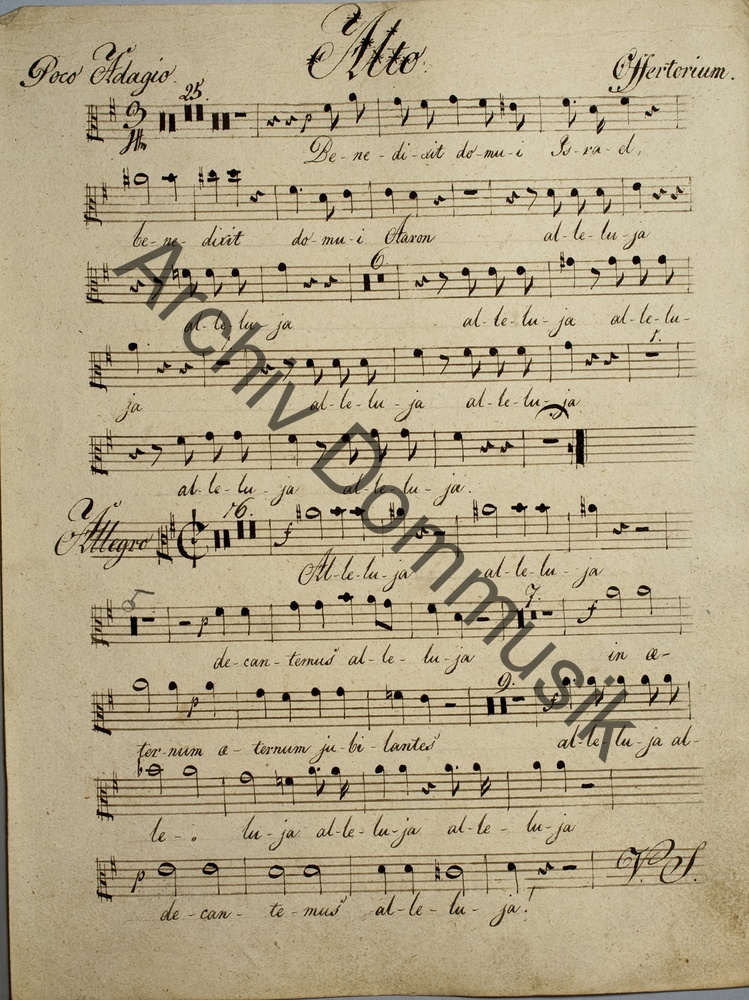 Alto.
Poco Adagio. Offertorium.
25. p
Be-ne-di-xit do-mu-i Is-ra-el,
be-ne-dixit do-mu-i Aaron al-le-lu-ja
6
al-le-lu-ja al-le-lu-ja al-le-lu-
1.
ja al-le-lu-ja al-le-lu-ja
al-le-lu-ja al-le-lu-ja.
Allegro 16. f
Al-le-lu-ja al-le-lu-ja
5 p 7. f
de-can-temus al-le-lu-ja in æ-
p 9. f
ter-num æ-ternum ju-bi-lantes al-le-lu-ja al-
le-lu-ja al-le-lu-ja al-le-lu-ja
p V. S.
de-can-te-mus al-le-lu-ja!
Archiv Dommusik